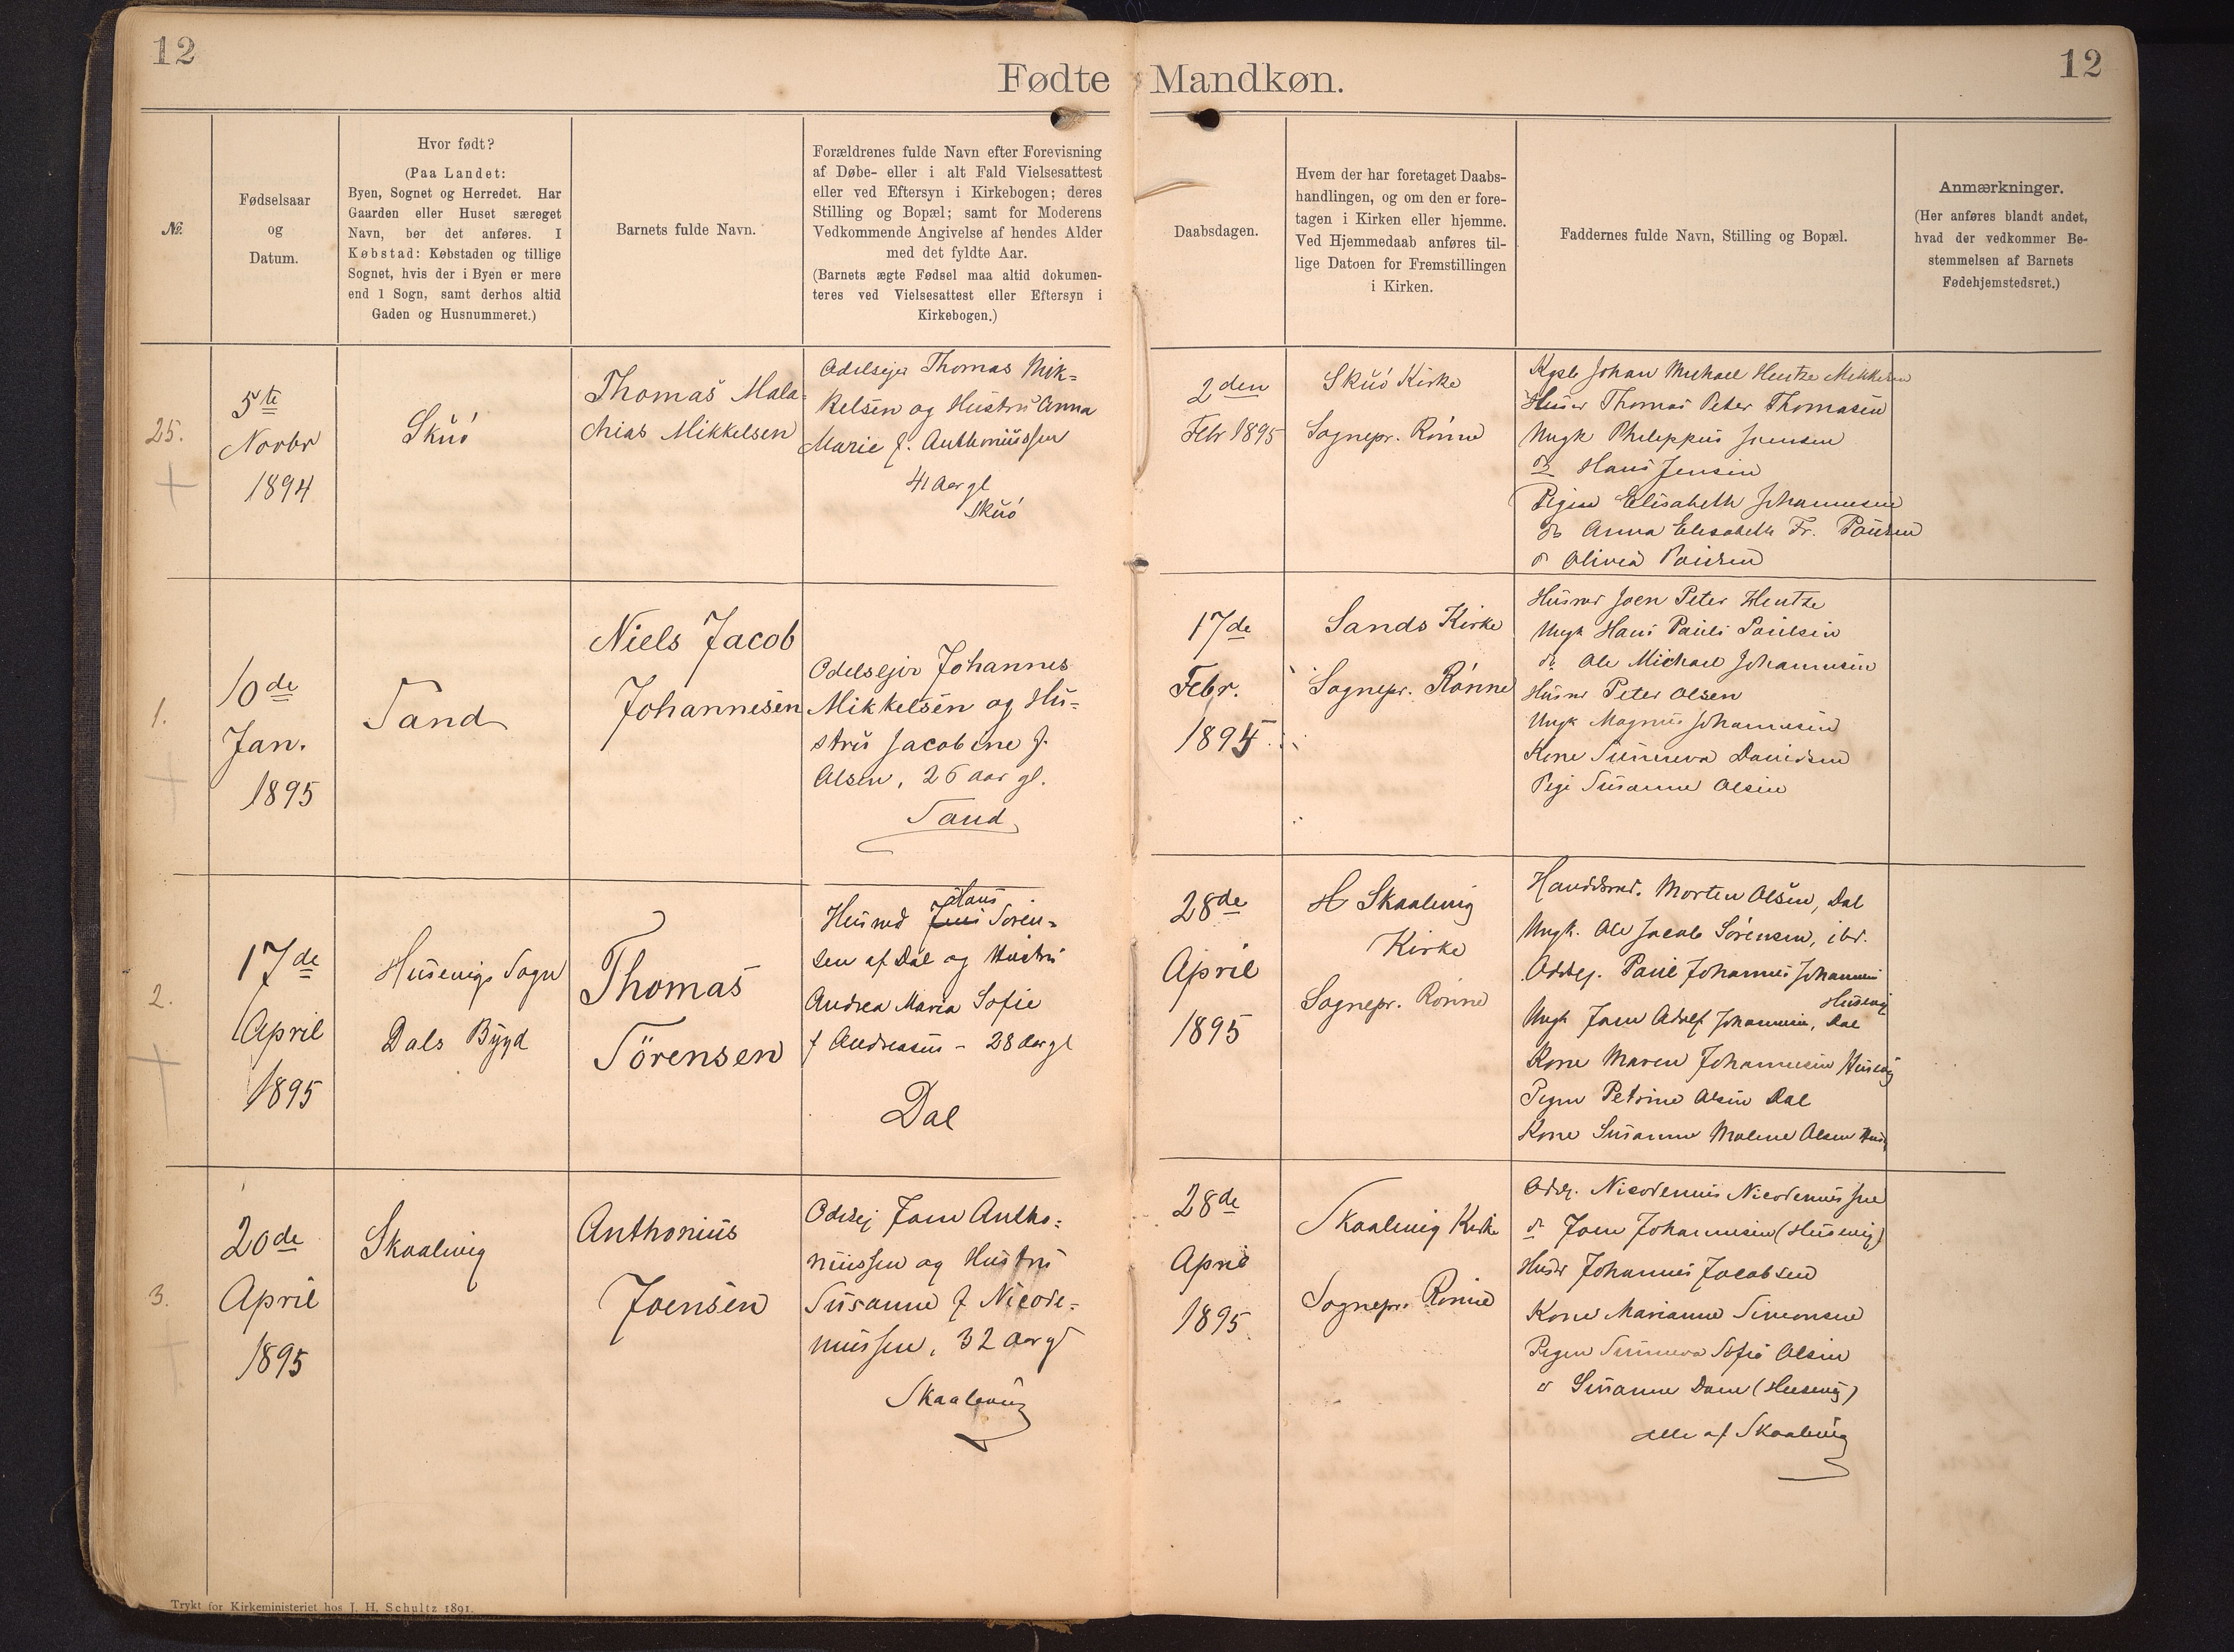 12
12
Fødte Mandkøn.
№.
Fødselsaar
og
Datum.
Hvor født?
(Paa Landet:
Byen, Sognet og Herredet. Har
Gaarden eller Huset særeget
Navn, bør det anføres. I
Købstad: Købstaden og tillige
Sognet, hvis der i Byen er mere
end 1 Sogn, samt derhos altid
Gaden og Husnummeret.)
Barnets fulde Navn.
Forældrenes fulde Navn efter Forevisning
af Døbe- eller i alt Fald Vielsesattest
eller ved Eftersyn i Kirkebogen; deres
Stilling og Bopæl; samt for Moderens
Vedkommende Angivelse af hendes Alder
med det fyldte Aar.
(Barnets ægte Fødsel maa altid dokumen-
teres ved Vielsesattest eller Eftersyn i
Kirkebogen.)
Daabsdagen.
Hvem der har foretaget Daabs-
handlingen, og om den er fore-
tagen i Kirken eller hjemme.
Ved Hjemmedaab anføres til-
lige Datoen for Fremstillingen
i Kirken.
Faddernes fulde Navn, Stilling og Bopæl.
Anmærkninger.
(Her anføres blandt andet,
hvad der vedkommer Be-
stemmelsen af Barnets
Fødehjemstedsret.)
25.
5te
Novbr
1894
Skuö
Thomas Mala-
chias Mikkelsen
Odelsejer Thomas Mik-
kelsen og Hustru Anna
Marie f. Anthoniussen
41 Aar gl
Skuö
2den
Febr 1895
Skuö Kirke
Sognepr. Rönne
Johan Michael Hentze Mikkelsen
Husm Thomas Peter Thomasen
Ungk Philippus Joensen
do Hans Jensen
Pigen Elisabeth Johannesen
do Anna Elisabeth Fr. Poulsen
do Olivia Poulsen
1.
10de
Jan.
1895
Sand
Niels Jacob
Johannesen
Odelsejer Johannes
Mikkelsen og Hu-
stru Jacobine f.
Olsen, 26 aar gl.
Sand
17de
Febr.
1895
Sands Kirke
Sognepr. Rönne
Husmd Joen Peter Hentze
Ungk Hans Pauli Poulsen
do Ole Michael Johannesen
Husmd Peter Olsen
Ungk Magnus Johannesen
Kone Sunneva Davidsen
Pige Susanne Olsen
2.
17de
April
1895
Husevigs Sogn
Dals Bygd
Thomas
Sörensen
Hans
Husmd Jens Sören-
sen af Dal og Hustru
Andrea Maria Sofie
f Andreasen - 28 Aar gl
Dal
28de
April
1895
H Skaalevig
Kirke
Sognepr. Rönne
Morten Olsen, Dal
Ungk. Ole Jacob Sörensen, ibd.
Odelsej. Paul Johannes Johannesen
Husevig
Ungk Joen Adolf Johannesen, Dal
Kone Maren Johannesen Husevig
Pigen Petrine Olsen Dal
Kone Susanne Malene Olsen
3.
20de
April
1895
Skaalevig
Anthonius
Joensen
Odelsej Joen Antho-
niussen og Hustru
Susanne f Nicode-
mussen, 32 Aar gl
Skaalevig
28de
April
1895
Skaalevig Kirke
Sognepr. Rönne
Odelsej. Nicodemus Nicodemussen
do Joen Johannesen (Husevig)
Husmd Johannes Jacobsen
Kone Marianne Simonsen
Pigen Sunneva Sofie Olsen
do Susanne Dam (Husevig)
alle af Skaalevig
Trykt for Kirkeministeriet hos J. H. Schultz 1891.